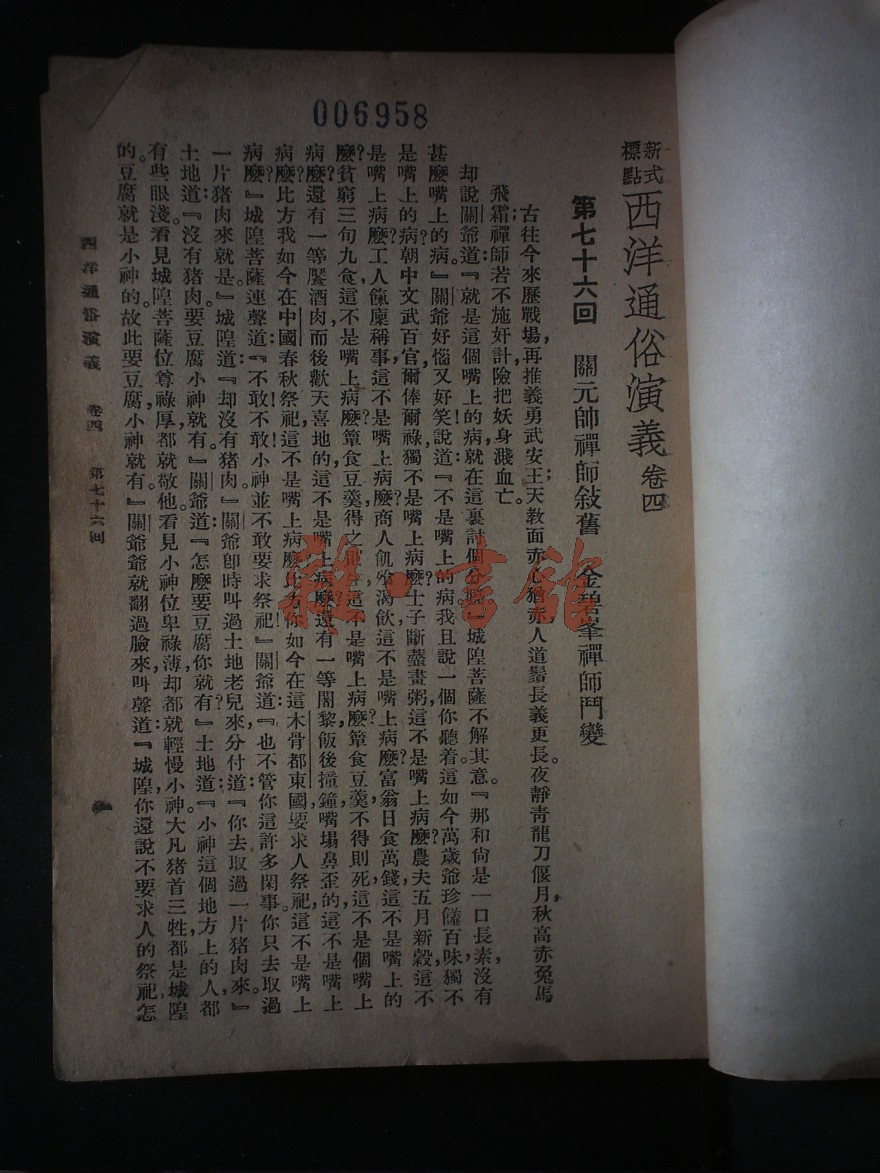 006958
新式標點 西洋通俗演義 卷四
第七十六回 關元帥禪師敍舊 金碧峯禪師鬥變
古往今來歷戰場，再推義勇武安王；天教面赤心猶赤，人道鬍長義更長。夜靜青龍刀偃月，秋高赤兔馬
飛霜；禪師若不施奸計，險把妖身濺血亡。
却說關爺道：『就是這個嘴上的病，就在這裏討個分曉。』城隍菩薩不解其意。『那和尙是一口長素，沒有
甚麼嘴上的病。』關爺好惱又好笑，說道：『不是嘴上的病，我且說一個你聽着。這如今萬歲爺珍饈百味，獨不
是嘴上的病？朝中文武百官，爾俸爾祿，獨不是嘴上病麼？士子斷虀畫粥，這不是嘴上病麼？農夫五月新穀，這不
是嘴上病麼？工人餼廩稱事，這不是嘴上病麼？商人飢飡渴飲，這不是嘴上病麼？富翁日食萬錢，這不是嘴上的
麼？貧窮三旬九食，這不是嘴上病麼？簞食豆羹，得之則生，這不是嘴上病麼？簞食豆羹，不得則死，這不是個嘴上
病麼？還有一等饜酒肉而後歡天喜地的，這不是嘴上病麼？還有一等闍黎飯後撞鐘，嘴塌鼻歪的，這不是嘴上
病麼？比方我如今在中國春秋祭祀，這不是嘴上病麼？比方你如今在這木骨都東國，要求人祭祀，這不是嘴上
病麼？』城隍菩薩連聲道：『不敢！不敢！小神並不敢要求祭祀！』關爺道：『也不管你這許多閑事。你只去取過
一片猪肉來就是。』城隍道：『却沒有猪肉。』關爺卽時叫過土地老兒來，分付道：『你去取過一片猪肉來。』
土地道：『沒有猪肉。要豆腐小神就有。』關爺道：『怎麼要豆腐你就有？』土地道：『小神這個地方上的人，都
有些眼淺。看見城隍菩薩位尊祿厚，都就敬他，看見小神位卑祿薄，却都就輕慢小神。大凡猪首三牲，都是城隍
的。豆腐就是小神的。故此要豆腐，小神就有。』關爺爺就翻過臉來，叫聲道：『城隍，你還說不要求人的祭祀，怎
西洋通俗演義 卷四 第七十六回